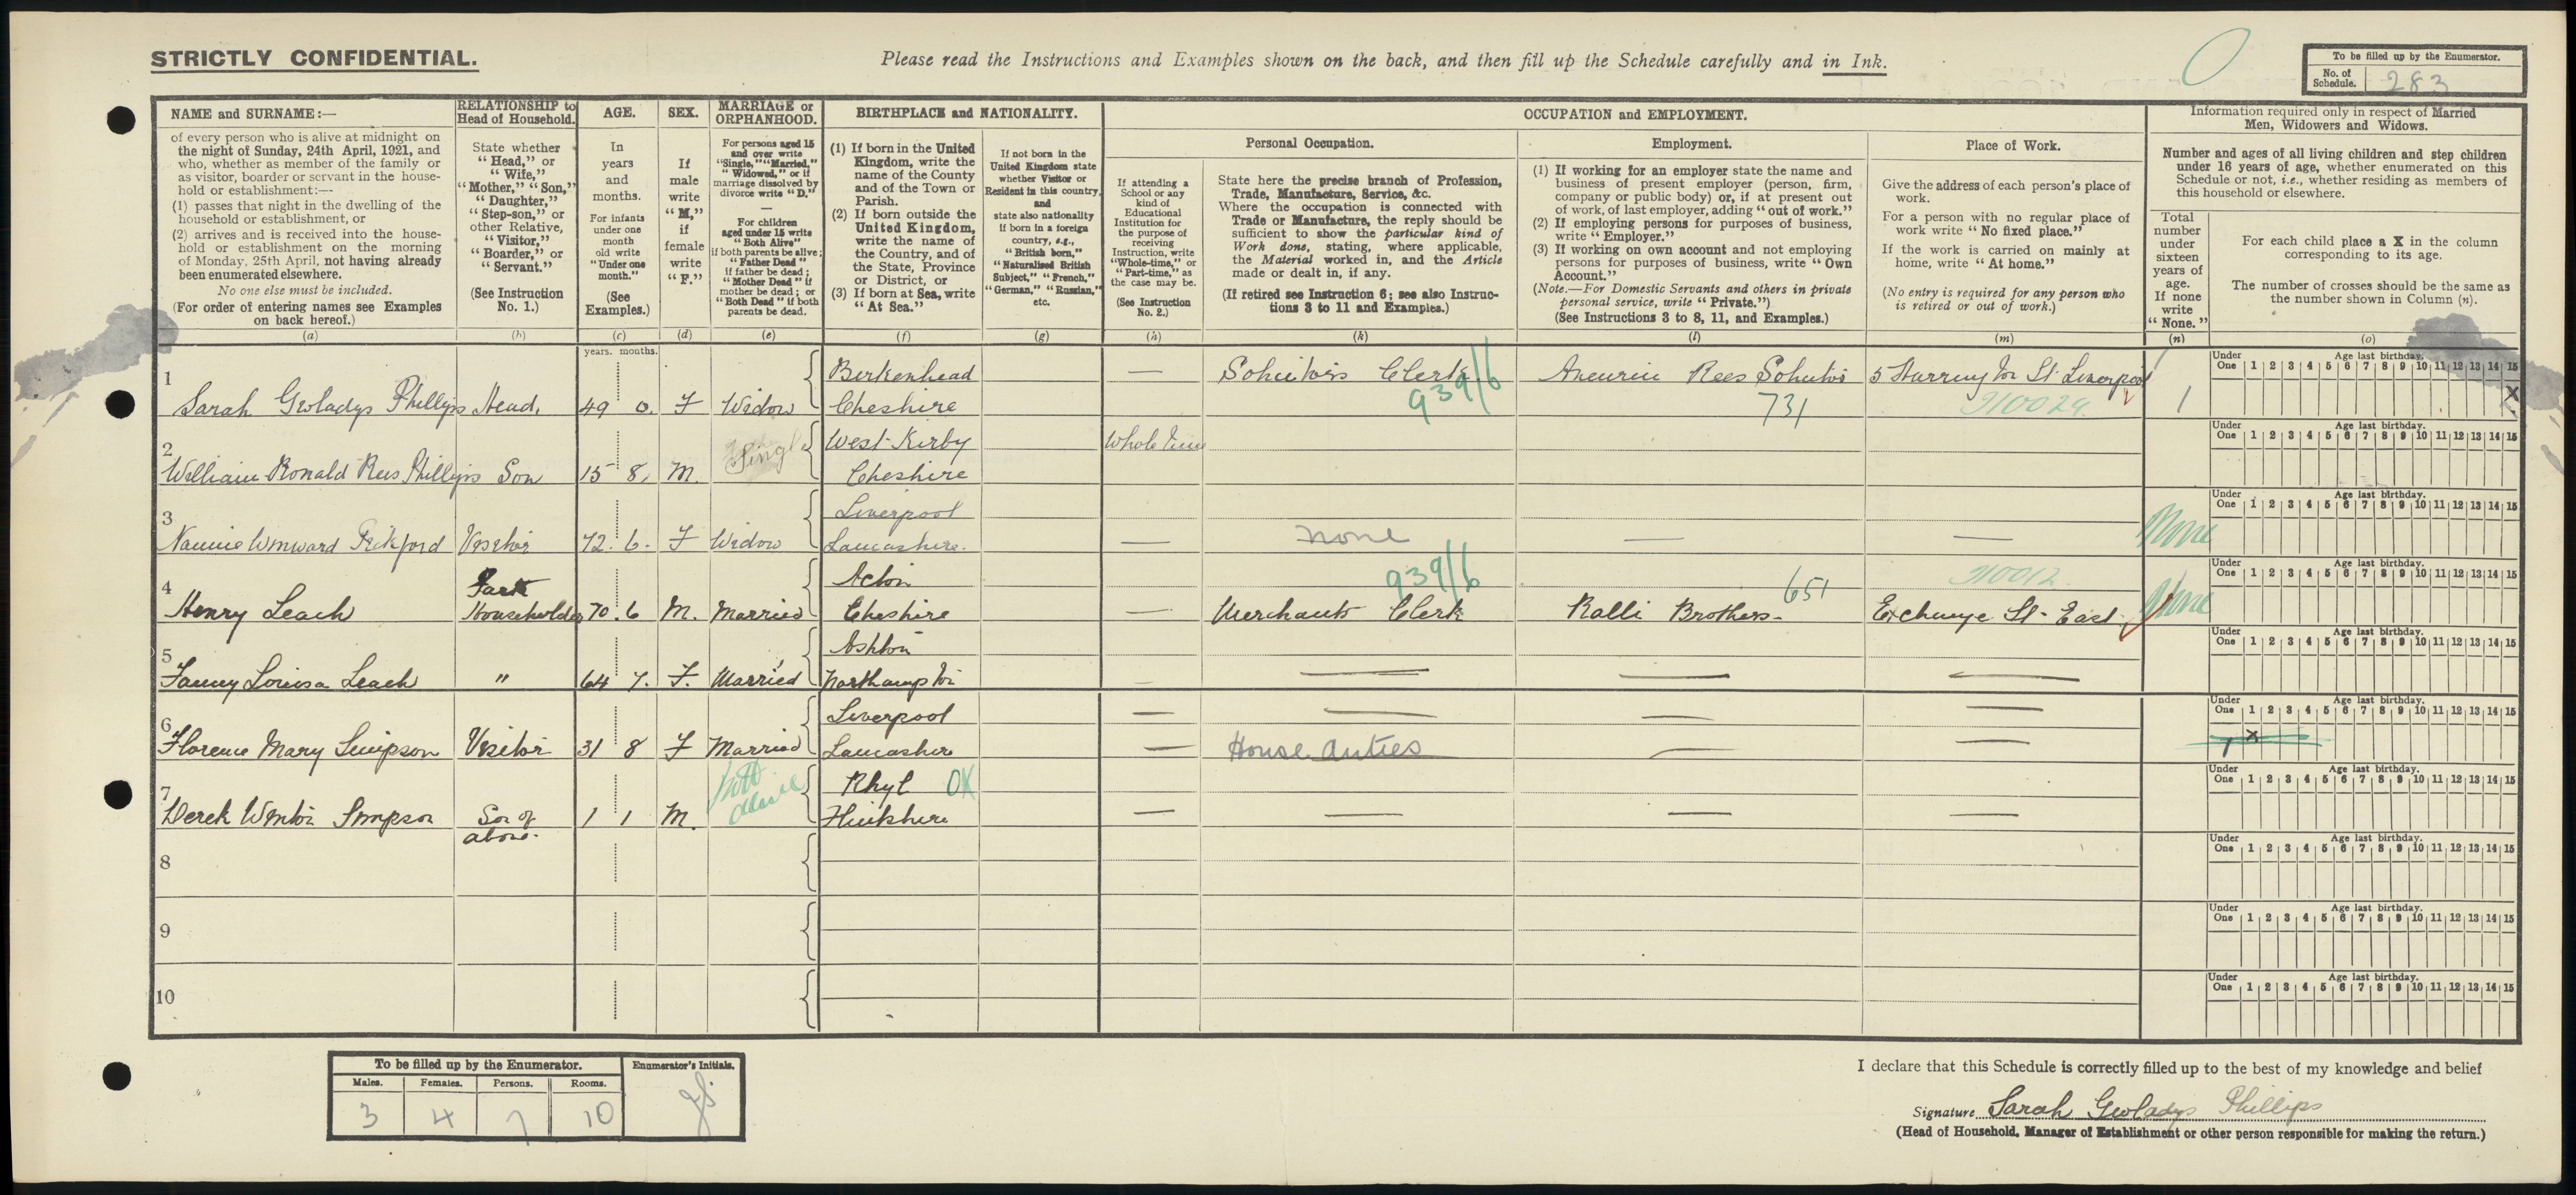 STRICTLY CONFIDENTIAL.
Please read the Instructions and Examples shown on the back, and then fill up the Schedule carefully and in Ink.
To be filled up by the Enumerator.
No. of Schedule. 283
NAME and SURNAME:—
of every person who is alive at midnight on
the night of Sunday, 24th April, 1921, and
who, whether as member of the family or
as visitor, boarder or servant in the house-
hold or establishment:—
(1) passes that night in the dwelling of the
household or establishment, or
(2) arrives and is received into the house-
hold or establishment on the morning
of Monday, 25th April, not having already
been enumerated elsewhere.
No one else must be included.
(For order of entering names see Examples
on back hereof.)
(a)
RELATIONSHIP to
Head of Household.
State whether
"Head," or
"Wife,"
"Mother," "Son,"
"Daughter,"
"Step-son," or
other Relative,
"Visitor,"
"Boarder," or
"Servant."
(See Instruction
No. 1.)
(b)
AGE.
In
years
and
months.
For infants
under one
month
old write
"Under one
month."
(See
Examples.)
(c)
SEX.
If
male
write
"M,"
if
female
write
"F."
(d)
MARRIAGE or
ORPHANHOOD.
For persons aged 15
and over write
"Single," "Married,"
"Widowed," or if
marriage dissolved by
divorce write "D."
For children
aged under 15 write
"Both Alive"
if both parents be alive;
"Father Dead"
if father be dead;
"Mother Dead" if
mother be dead; or
"Both Dead" if both
parents be dead.
(e)
BIRTHPLACE and NATIONALITY.
(1) If born in the United
Kingdom, write the
name of the County
and of the Town or
Parish.
(2) If born outside the
United Kingdom,
write the name of
the Country, and of
the State, Province
or District, or
(3) If born at Sea, write
"At Sea."
(f)
If not born in the
United Kingdom state
whether Visitor or
Resident in this country,
and
state also nationality
if born in a foreign
country, e.g.,
"British born,"
"Naturalised British
Subject," "French,"
"German," "Russian,"
etc.
(g)
OCCUPATION and EMPLOYMENT.
If attending a
School or any
kind of
Educational
Institution for
the purpose of
receiving
Instruction, write
"Whole-time," or
"Part-time," as
the case may be.
(See Instruction
No. 2.)
(h)
Personal Occupation.
State here the precise branch of Profession,
Trade, Manufacture, Service, &c.
Where the occupation is connected with
Trade or Manufacture, the reply should be
sufficient to show the particular kind of
Work done, stating, where applicable,
the Material worked in, and the Article
made or dealt in, if any.
(If retired see Instruction 6; see also Instruc-
tions 3 to 11 and Examples.)
(k)
Employment.
(1) If working for an employer state the name and
business of present employer (person, firm,
company or public body) or, if at present out
of work, of last employer, adding "out of work."
(2) If employing persons for purposes of business,
write "Employer."
(3) If working on own account and not employing
persons for purposes of business, write "Own
Account."
(Note.—For Domestic Servants and others in private
personal service, write "Private.")
(See Instructions 3 to 8, 11, and Examples.)
(l)
Place of Work.
Give the address of each person's place of
work.
For a person with no regular place of
work write "No fixed place."
If the work is carried on mainly at
home, write "At home."
(No entry is required for any person who
is retired or out of work.)
(m)
Information required only in respect of Married
Men, Widowers and Widows.
Number and ages of all living children and step children
under 16 years of age, whether enumerated on this
Schedule or not, i.e., whether residing as members of
this household or elsewhere.
Total
number
under
sixteen
years of
age.
If none
write
"None."
(n)
For each child place a X in the column
corresponding to its age.
The number of crosses should be the same as
the number shown in Column (n).
(o)
years. months.
1 Sarah Gwladys Phillips Head. 49 0. F Widow Birkenhead Cheshire — Solicitors Clerk 939/6 Aneurin Rees Solicitor 731 5 Harrington St Liverpool 1 X
Under One 1 2 3 4 5 6 7 8 9 10 11 12 13 14 15 Age last birthday.
2 William Ronald Rees Phillips Son 15 8. M. Single West Kirby Cheshire Whole time
Under One 1 2 3 4 5 6 7 8 9 10 11 12 13 14 15 Age last birthday.
3 Nannie Winward Pickford Visitor 72. 6. F Widow Liverpool Lancashire. — none — — None
Under One 1 2 3 4 5 6 7 8 9 10 11 12 13 14 15 Age last birthday.
4 Henry Leach Part Householder 70. 6 M. Married Acton Cheshire — Merchants Clerk 939/6 Ralli Brothers 651 Exchange St East None
Under One 1 2 3 4 5 6 7 8 9 10 11 12 13 14 15 Age last birthday.
5 Fanny Louisa Leach " 64 7. F. Married Ashton Northampton — — —
Under One 1 2 3 4 5 6 7 8 9 10 11 12 13 14 15 Age last birthday.
6 Florence Mary Simpson Visitor 31 8 F Married Liverpool Lancashire — House duties — — 1 X
Under One 1 2 3 4 5 6 7 8 9 10 11 12 13 14 15 Age last birthday.
7 Derek Simpson Son of above. 1 1 M. both alive Rhyl Flintshire — — — —
Under One 1 2 3 4 5 6 7 8 9 10 11 12 13 14 15 Age last birthday.
8
Under One 1 2 3 4 5 6 7 8 9 10 11 12 13 14 15 Age last birthday.
9
Under One 1 2 3 4 5 6 7 8 9 10 11 12 13 14 15 Age last birthday.
10
Under One 1 2 3 4 5 6 7 8 9 10 11 12 13 14 15 Age last birthday.
To be filled up by the Enumerator.
Males. Females. Persons. Rooms.
3 4 7 10
Enumerator's Initials.
I declare that this Schedule is correctly filled up to the best of my knowledge and belief
Signature Sarah Gwladys Phillips
(Head of Household, Manager of Establishment or other person responsible for making the return.)